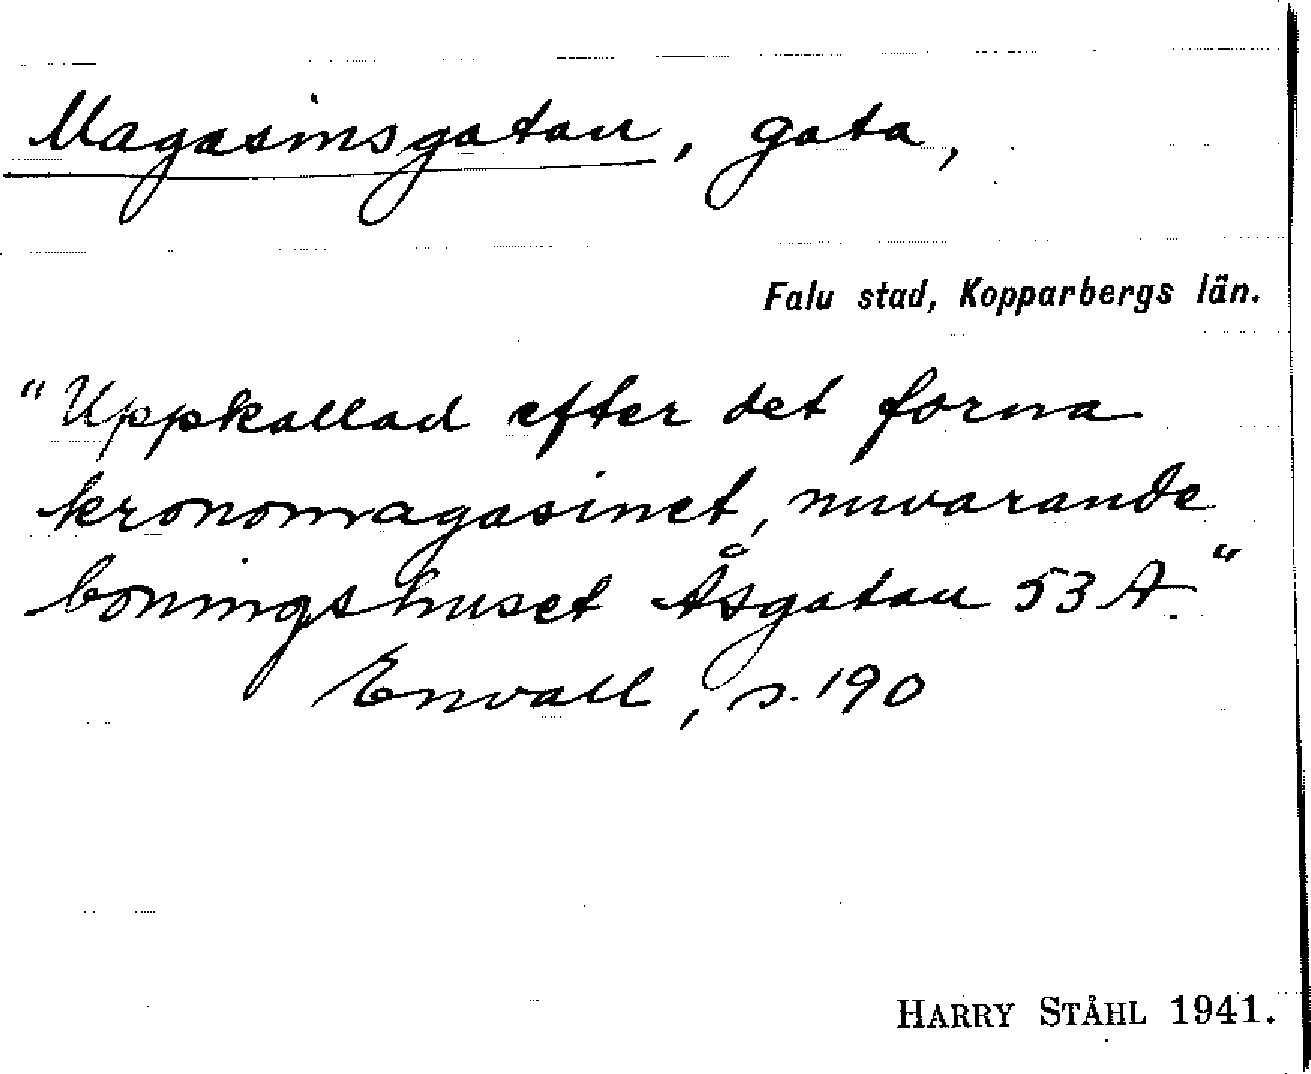 Magasinsgatan, gata,
Falu stad, Kopparbergs län.
"Uppkallad efter det forna
kronomagasinet, nuvarande
boningshuset Åsgatan 53 A."
Envall, s. 190
HARRY STÅHL 1941.